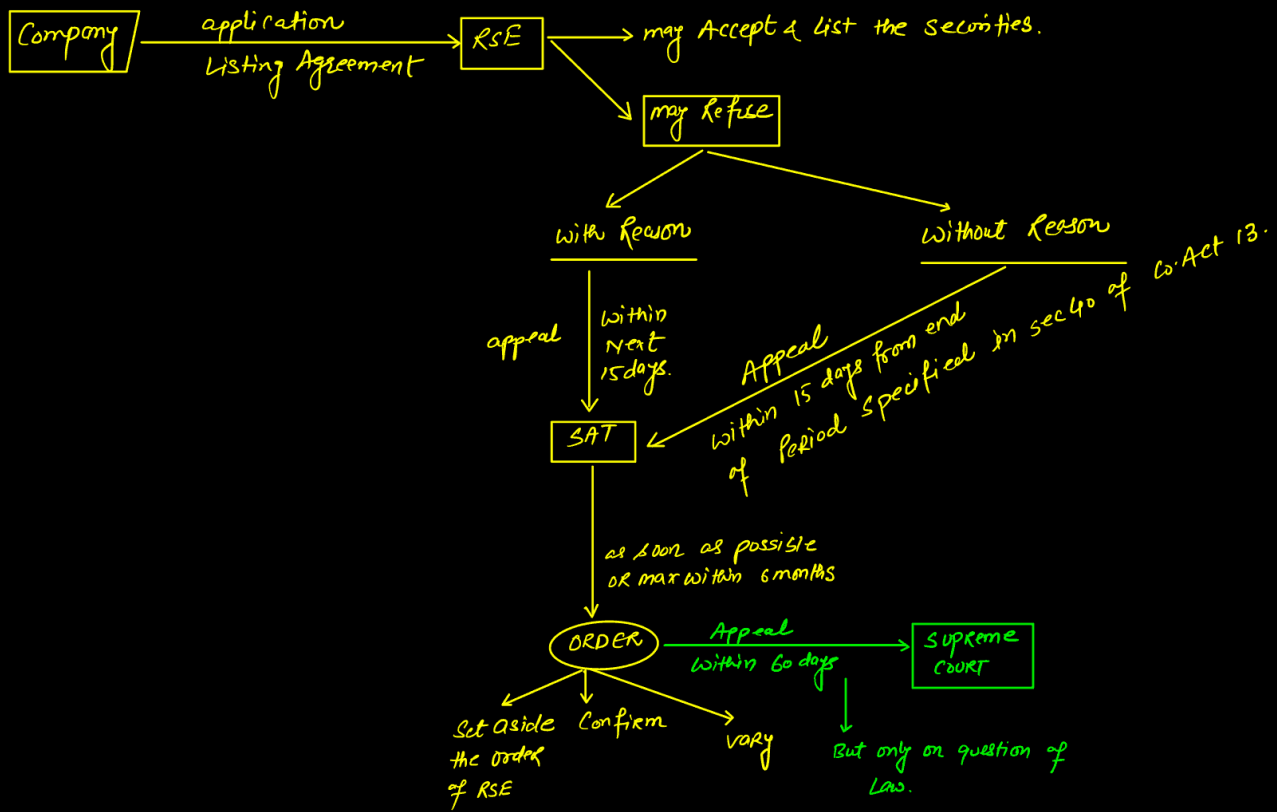 Company
application
Listing Agreement
RSE
may Accept & List the securities.
may Refuse
With Reason
Without Reason
appeal
Within
Next
15 days.
Appeal
Within 15 days from end
of Period Specified in sec 40 of Co. Act 13.
SAT
as soon as possible
OR max within 6 months
ORDER
Appeal
Within 60 days
SUPREME
COURT
Set aside
the order
of RSE
Confirm
vary
But only on question of
Law.